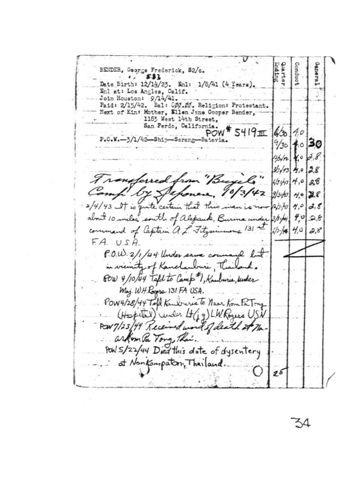 BENDER, George Frederick, S2/c.
Date Birth: 12/14/23. Enl: 1/8/41 (4 Years).
Enl at: Los Angles, Calif.
Join Houston: 9/14/41.
Paid: 2/15/42. Bal: Religion: Protestant.
Next of Kin: Mother, Ellen Jane Cooper Bender,
1183 West 14th Street,
San Pedro, California.
POW# 5419 III
P.O.W.—3/1/42—Ship—Serang—Batavia.
Quarter Ending
Conduct
General
6/30 4.0
9/30 4.0 30
4.0 2.8
4.0 2.8
4.0 2.8
4.0 2.8
4.0 2.8
4.0 2.8
4.0 2.8
Transferred from "Bicycle"
Camp by Japanese, 10/3/42
2/4/43 It is quite certain that this man is now
about 10 under south of Burma under
command of Captain A L Fitzsimmons 131st
F.A. USA.
P.O.W. 2/1/44 Under same command but
in vicinity of Kanchanburi, Thailand.
POW 4/10/44 Tsfd to Camp #1, Kanburi, under
Maj. W H Rogers 131 FA USA.
POW 4/28/44 Tsfd Kanburi to Near Kom Pa Tong
(Hospital) under Lt(jg) LW Rogers USN
POW 7/23/44 Received word of death at Na-
Tong, Thai.
POW 5/22/44 Died this date of dysentery
at Nankompaton, Thailand.
34